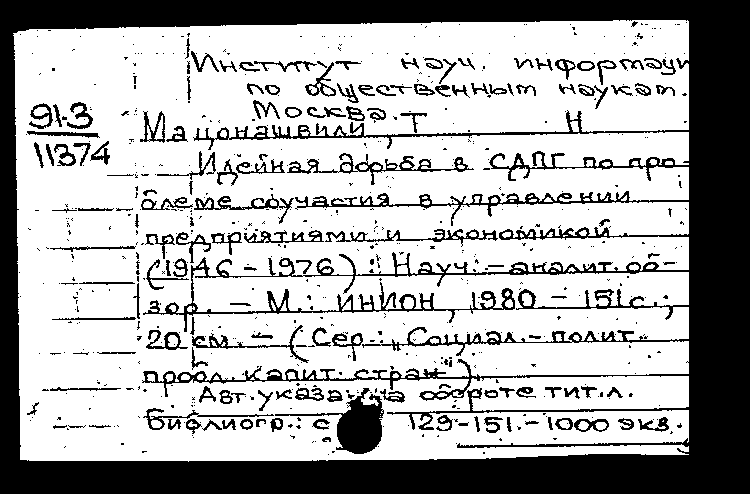 Институт науч. информаци
по общественным наукам.
Москва.
91-3
11374
Мацонашвили, Т Н
Идейная борьба в СДПГ по про-
блеме соучастия в управлении
предприятиями и экономикой.
(1946-1976): Науч.-аналит. об-
зор. - М.: ИНИОН, 1980 - 151 с.;
20 см. - (Сер.: „Социал.-полит.
пробл. капит. стран")
Авт. указан на обороте тит. л.
Библиогр.: с 129-151. - 1000 экз.